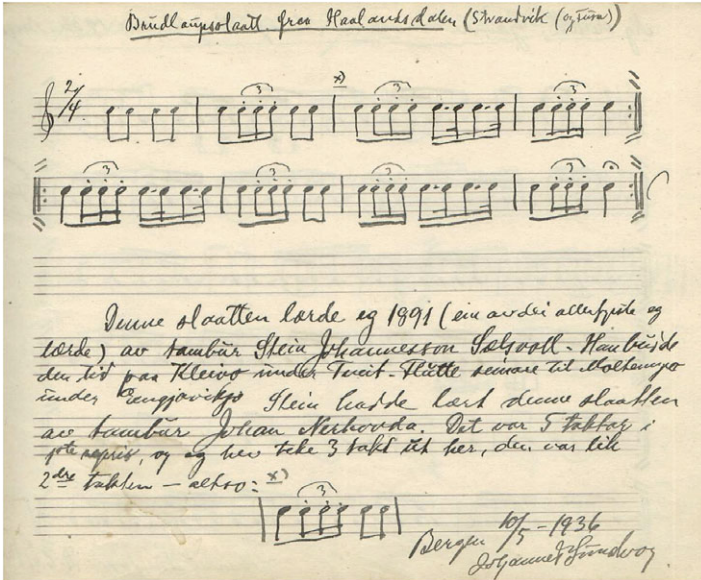 Brudlaupsslaatt fraa Haalandsdalen (Strandvik (og Fusa))
2/4
3
x)
3
3
3
3
3
3
Denne slaatten lærde eg 1891 (ein av dei allerfyste eg
lærde) av tambur Stein Johannesson Sælsvoll. Han budde
den tid paa Kleivo under Tveit. Flutte seinare til
under Stein hadde lært denne slaatten
av tambur Johan Nerhovda. Det var 5 taktar i
1ste repris, og eg hev teke 3 takt ut her, den var lik
2dre takten – altso: x)
3
Bergen 10/5 – 1936
Johannes Sundvor